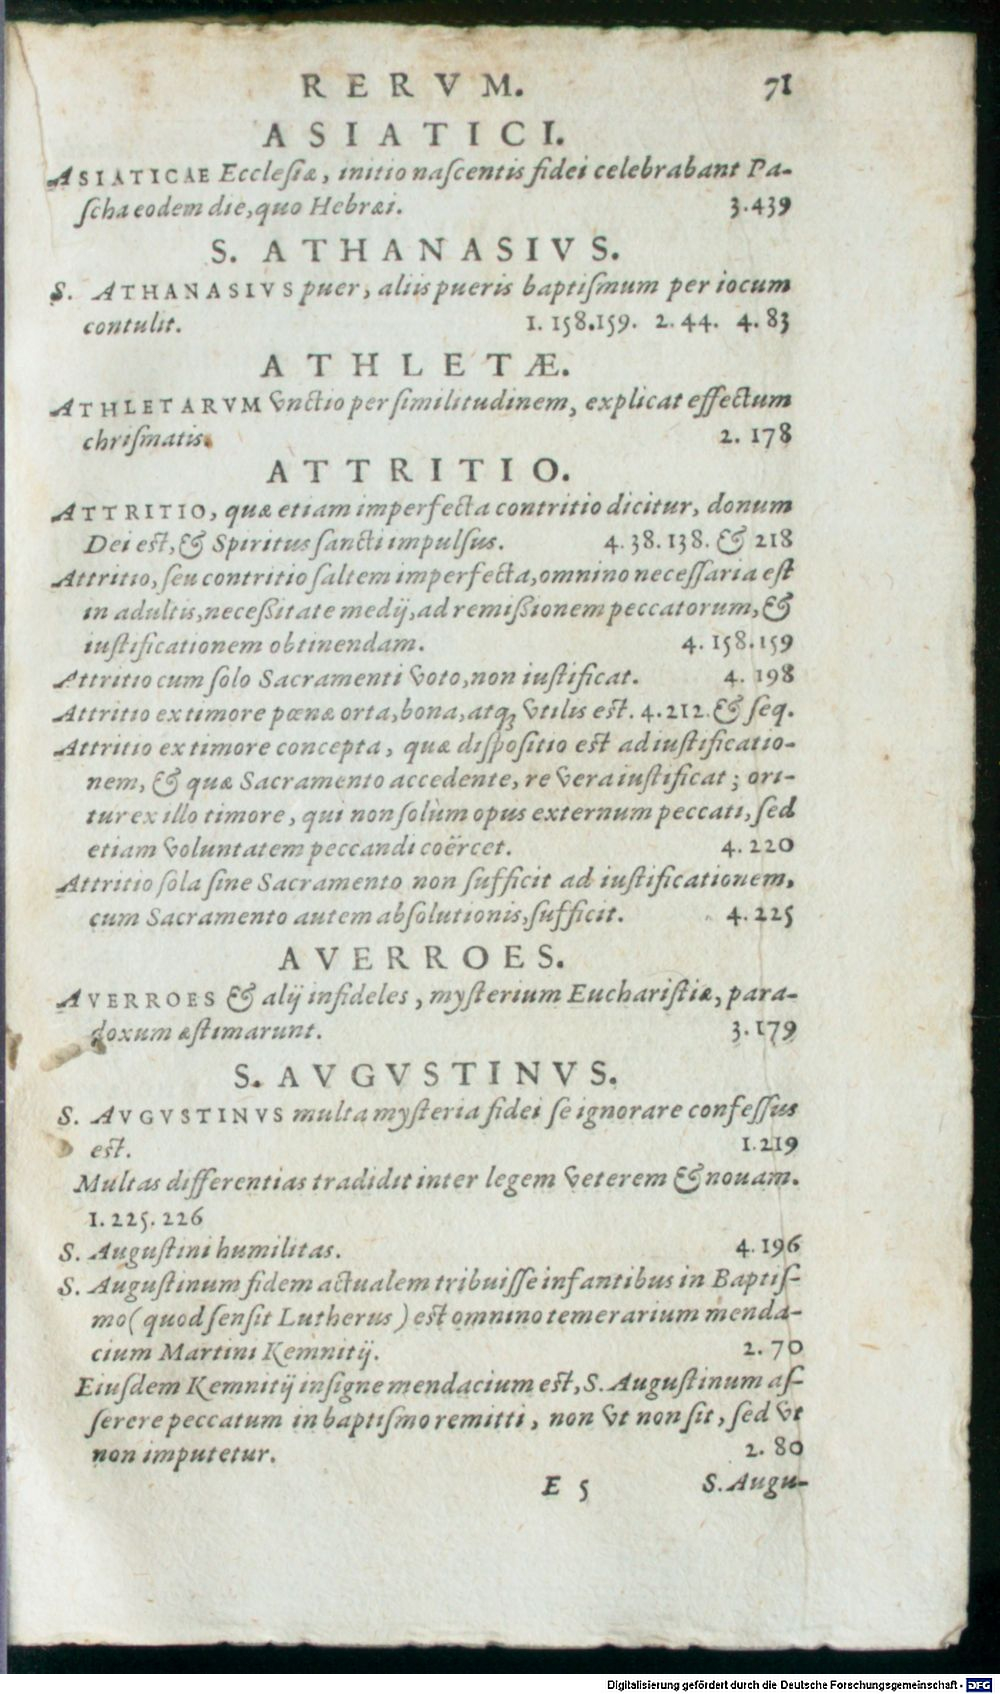 RERVM. 71
ASIATICI.
ASIATICAE Ecclesiæ, initio naſcentis fidei celebrabant Pa-
ſcha eodem die, quo Hebræi. 3.439
S. ATHANASIVS.
S. ATHANASIVS puer, aliis pueris baptiſmum per iocum
contulit. 1. 158.159. 2. 44. 4. 83
ATHLETÆ.
ATHLETARVM vnctio per ſimilitudinem, explicat effectum
chriſmatis. 2. 178
ATTRITIO.
ATTRITIO, quæ etiam imperfecta contritio dicitur, donum
Dei est, & Spiritus ſancti impulſus. 4. 38. 138. & 218
Attritio, ſeu contritio ſaltem imperfecta, omnino neceſſaria est
in adultis, neceßitate medij, ad remißionem peccatorum, &
iuſtificationem obtinendam. 4. 158.159
Attritio cum ſolo Sacramenti voto, non iuſtificat. 4. 198
Attritio ex timore pœnæ orta, bona, atq; vtilis est. 4.212. & ſeq.
Attritio ex timore concepta, quæ diſpoſitio est ad iuſtificatio-
nem, & quæ Sacramento accedente, re vera iuſtificat; ori-
tur ex illo timore, qui non ſolùm opus externum peccati, ſed
etiam voluntatem peccandi coërcet. 4. 220
Attritio ſola ſine Sacramento non ſufficit ad iuſtificationem,
cum Sacramento autem abſolutionis, ſufficit. 4.225
AVERROES.
AVERROES & alij infideles, myſterium Euchariſtiæ, para-
doxum æſtimarunt. 3.179
S. AVGVSTINVS.
S. AVGVSTINVS multa myſteria fidei ſe ignorare confeſſus
est. 1.219
Multas differentias tradidit inter legem veterem & nouam.
1. 225. 226
S. Auguſtini humilitas. 4. 196
S. Auguſtinum fidem actualem tribuiſſe infantibus in Baptiſ-
mo (quod ſenſit Lutherus) est omnino temerarium menda-
cium Martini Kemnitij. 2. 70
Eiuſdem Kemnitij inſigne mendacium est, S. Auguſtinum aſ-
ſerere peccatum in baptiſmo remitti, non vt non ſit, ſed vt
non imputetur. 2. 80
E 5 S. Augu-
Digitalisierung gefördert durch die Deutsche Forschungsgemeinschaft - DFG